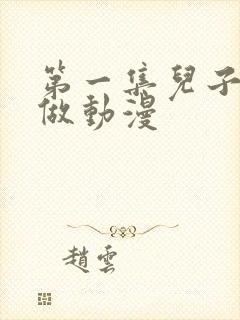 第一集兒子
做動漫
趙雲